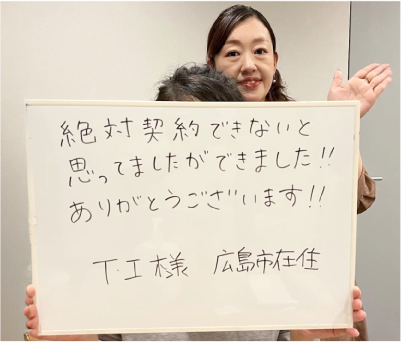 絶対契約できないと
思ってましたができました!!
ありがとうございます!!
T・I様 広島市在住